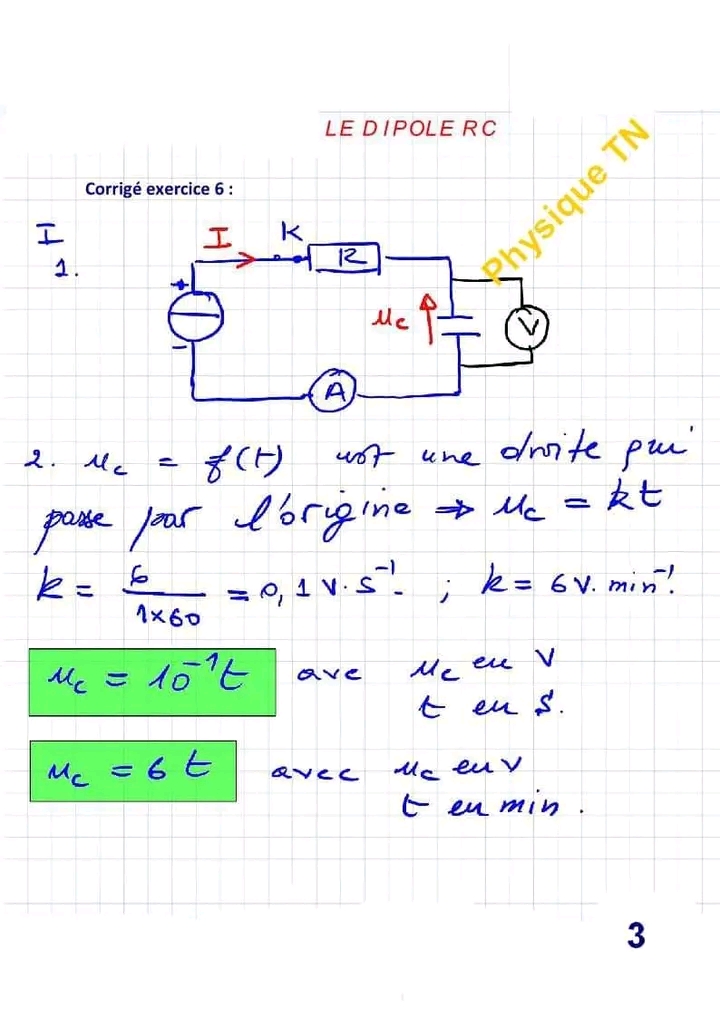 LE DIPOLE RC
Physique TN
Corrigé exercice 6 :
I
1.
I
K
R
+
-
uc
V
A
2. uc = f(t) est une droite qui
passe par l'origine ⇒ uc = kt
k = 6/1×60 = 0,1 V.s⁻¹. ; k = 6 V.min⁻¹.
uc = 10⁻¹t avc uc en V
t en s.
uc = 6 t avec uc en V
t en min.
3